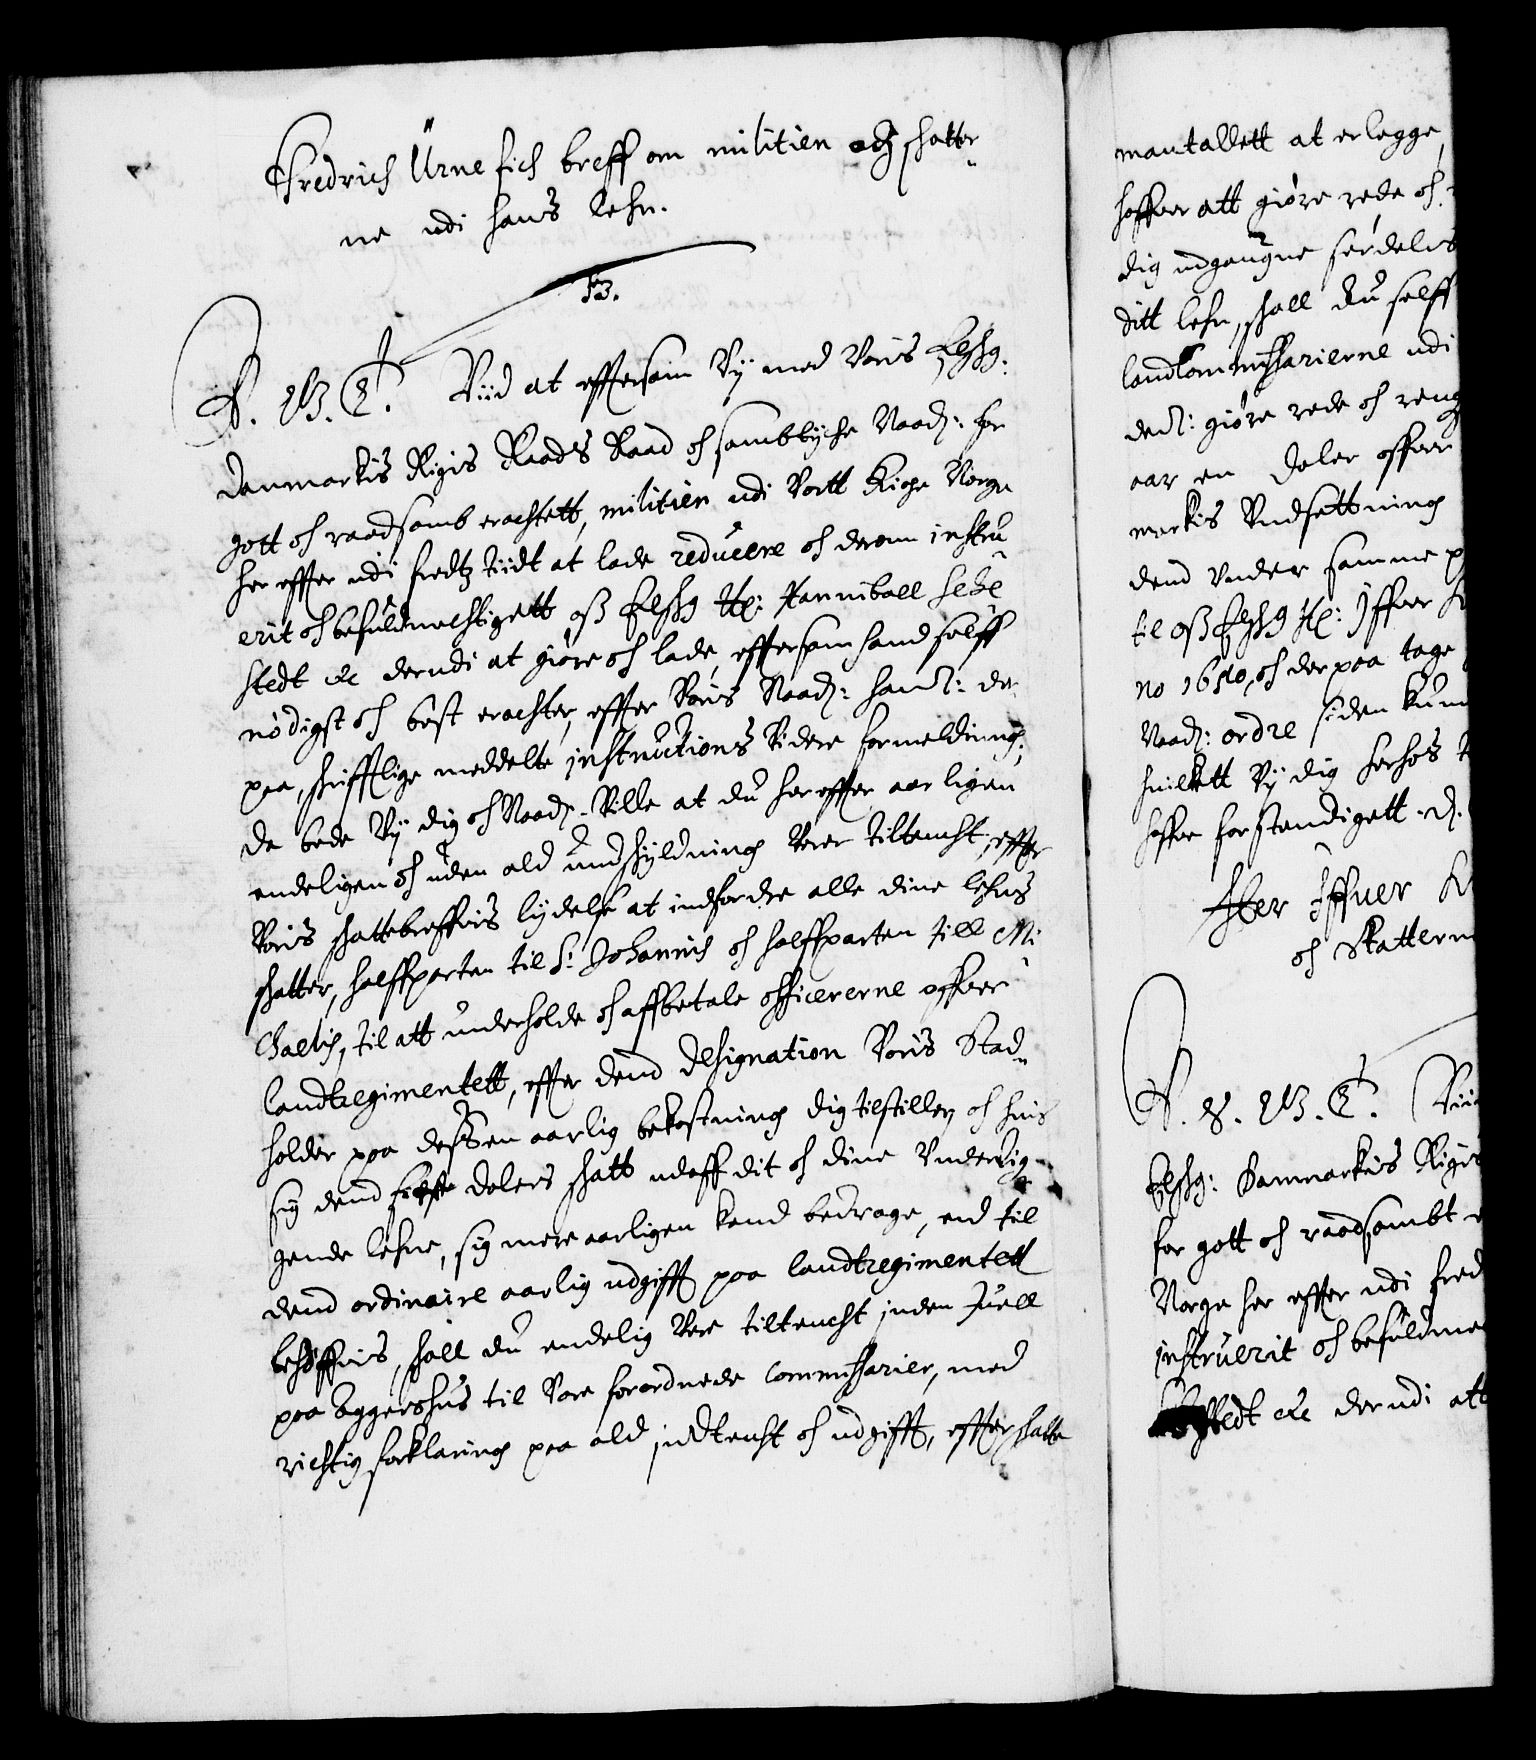 Fredrich Urne fick breff om militien och skatter-
ne udi hans lehn.
53.
F. W. G. Viid at efftersom Vy med Voris Elsch:
Danmarkis Rigis Raads Raad och samblyche Naadh: for
gott och raadsamb erachtett, militien udi Vortt Riche Norge
her effter udi fredtz tiidt at lade reducere och derom instru-
erit och befuldmechtigett oss Elsch Her: Hannibael Sehe
stedt etc derudi at giøre och lade, efftersom hand selff
nødigst och best erachter, effter Voris Naadh: hannem: der
paa, skrifftlige meddelte instructions Videre formeldning,
Da bede Vy dig och Naadh: Ville at du her effter aarligen
endeligen och uden ald undskyldning Verer tiltencht, effter
Voris skattebreffvis lydelse at indfordre alle dine lehns
skatter, halffparten til St Johannis och halffparten till Mi-
chaelis, til att underholde och affbetale officererne offver
landtregimentett, effter dend designation Voris Stad-
holder paa dessen aarlig bekostning dig tilstiller och huis
sig dend dalers skatt udaff dit och dine Underlig-
gende lehne, sig mere aarligen kand bedrage, end til
dend ordinaire aarlig udgifft paa landtregimentett
behøffvis, skall du endelig Vere tiltencht inden Juell
paa Aggershus til Vore forordnede Commissarier, med
richtig forklaring paa ald indtecht och udgifft, effter skatte
mantallett at erlegge,
haffver att giøre rede och
dig udgangne serdelis
ditt lehn, skall du selff
landCommissarierne udi
dend: giøre rede och reng
aar en daler offver
markis Undsettning
dend Under samme
til oss Elsch H: Iffver
no 1650, och der paa tage
Naadh: ordre siden kun
huilkett Vy dig herhos
haffve forstendigett. D.
Her Iffuer
och Skattern
F. W. G. Viid
Elsch: Danmarkis Rigis
for gott och raadsambt
Norge her effter udi fred
instruerit och befuldme
stedt etc derudi att